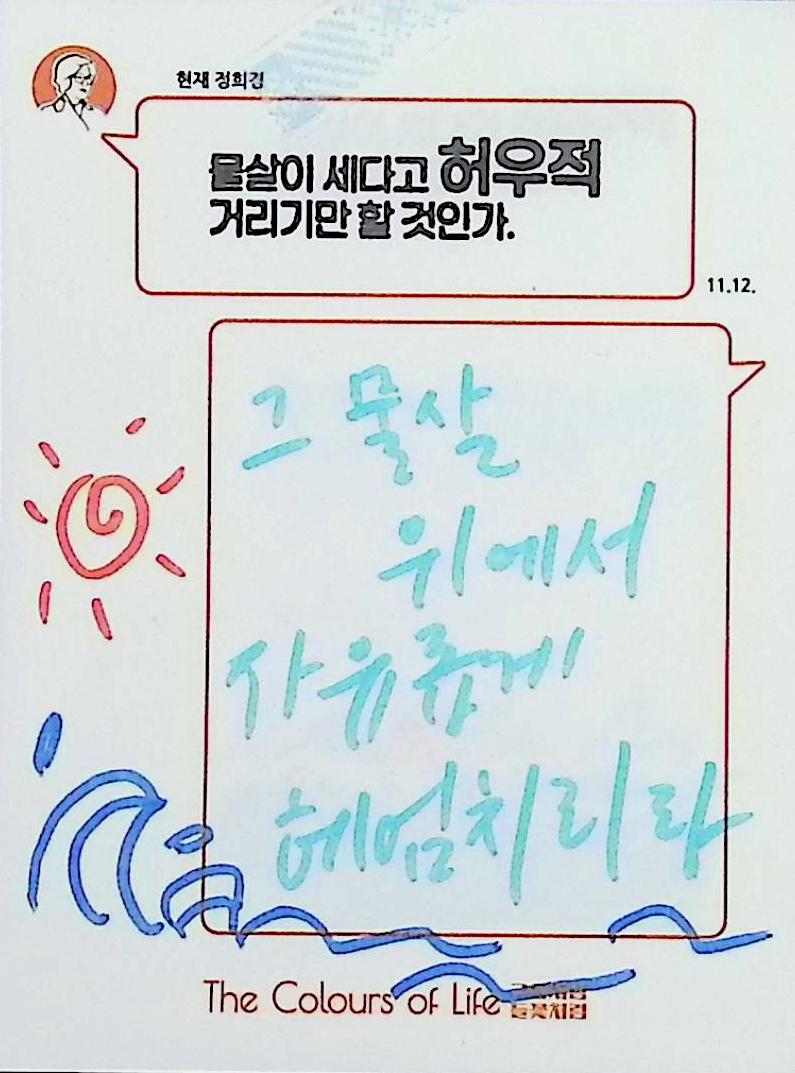 현재 정희김
물살이 세다고 허우적
거리기만 할 것인가.
11.12.
그 물살
위에서
자유롭게
헤엄치리라
The Colours of Life
들꽃처럼